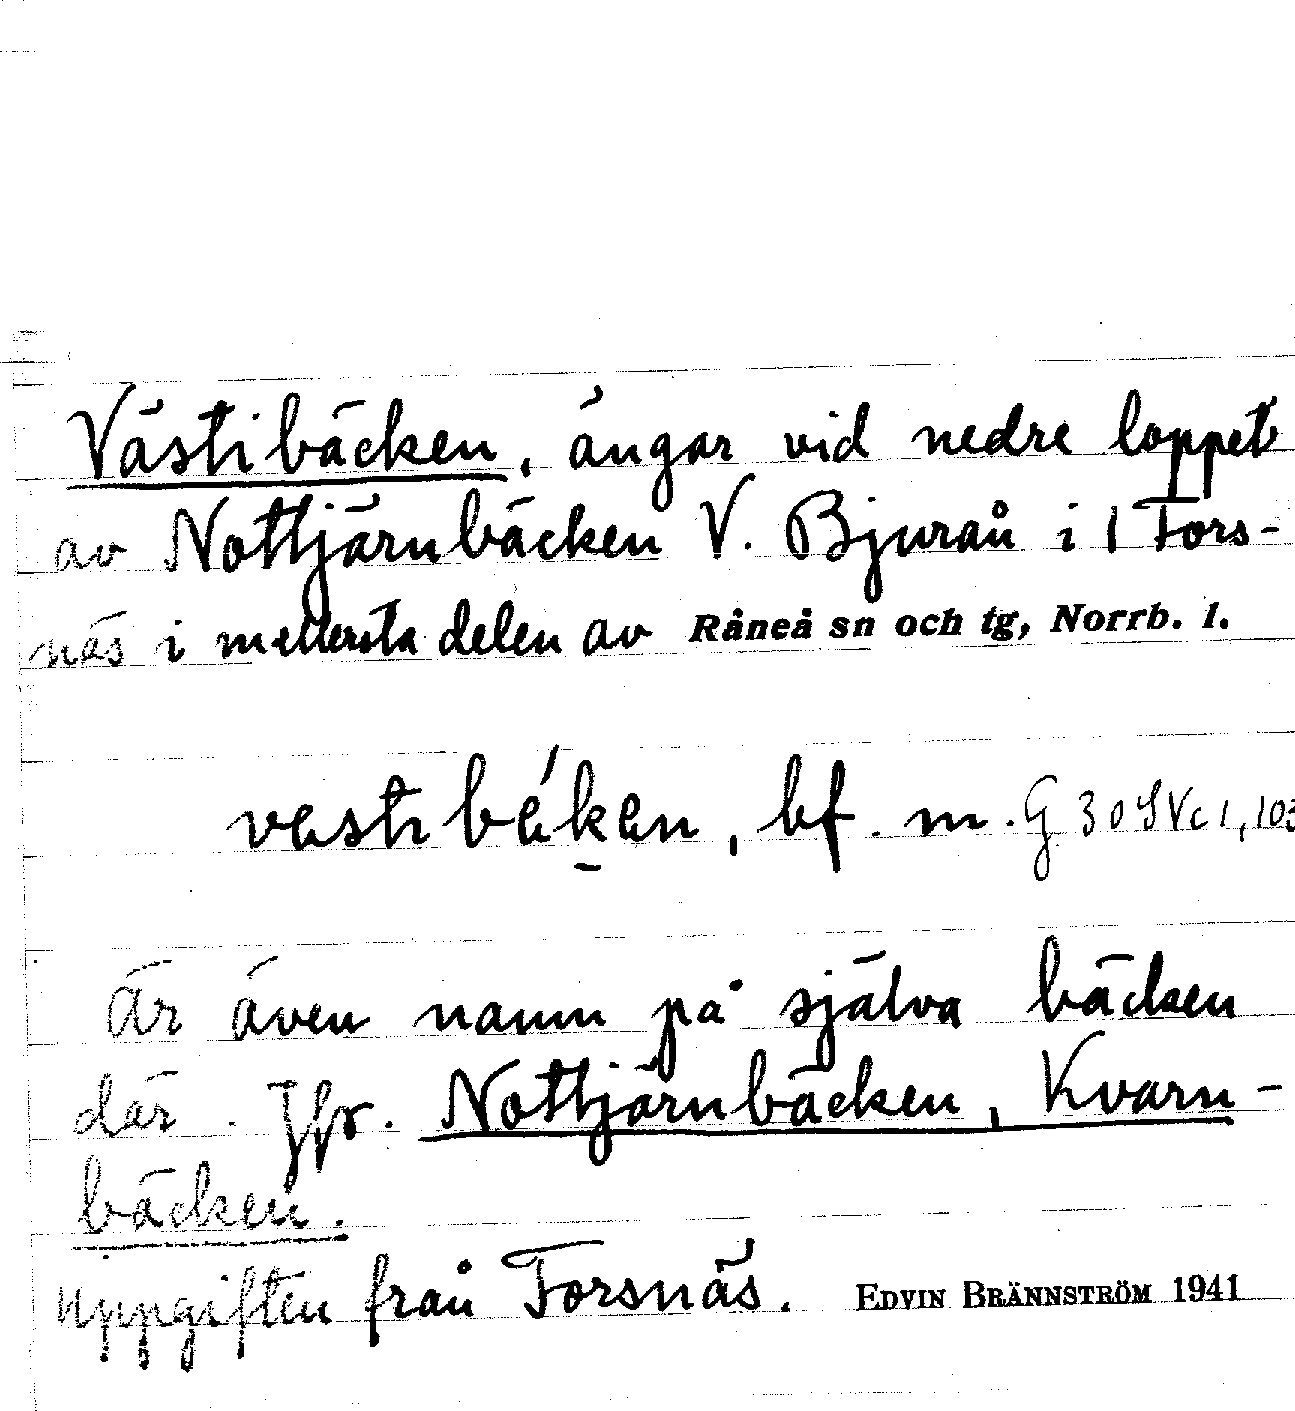 Västibäcken, ängar vid nedre loppet
av Nottjärnbäcken V. Bjuraå i 1 Fors-
näs i mellersta delen av Råneå sn och tg, Norrb. l.
vestibéken, bf. m. G 30 SVc 1, 103
Är även namn på själva bäcken
där. Jfr. Nottjärnbäcken, Kvarn-
bäcken.
Uppgiften från Forsnäs. EDVIN BRÄNNSTRÖM 1941